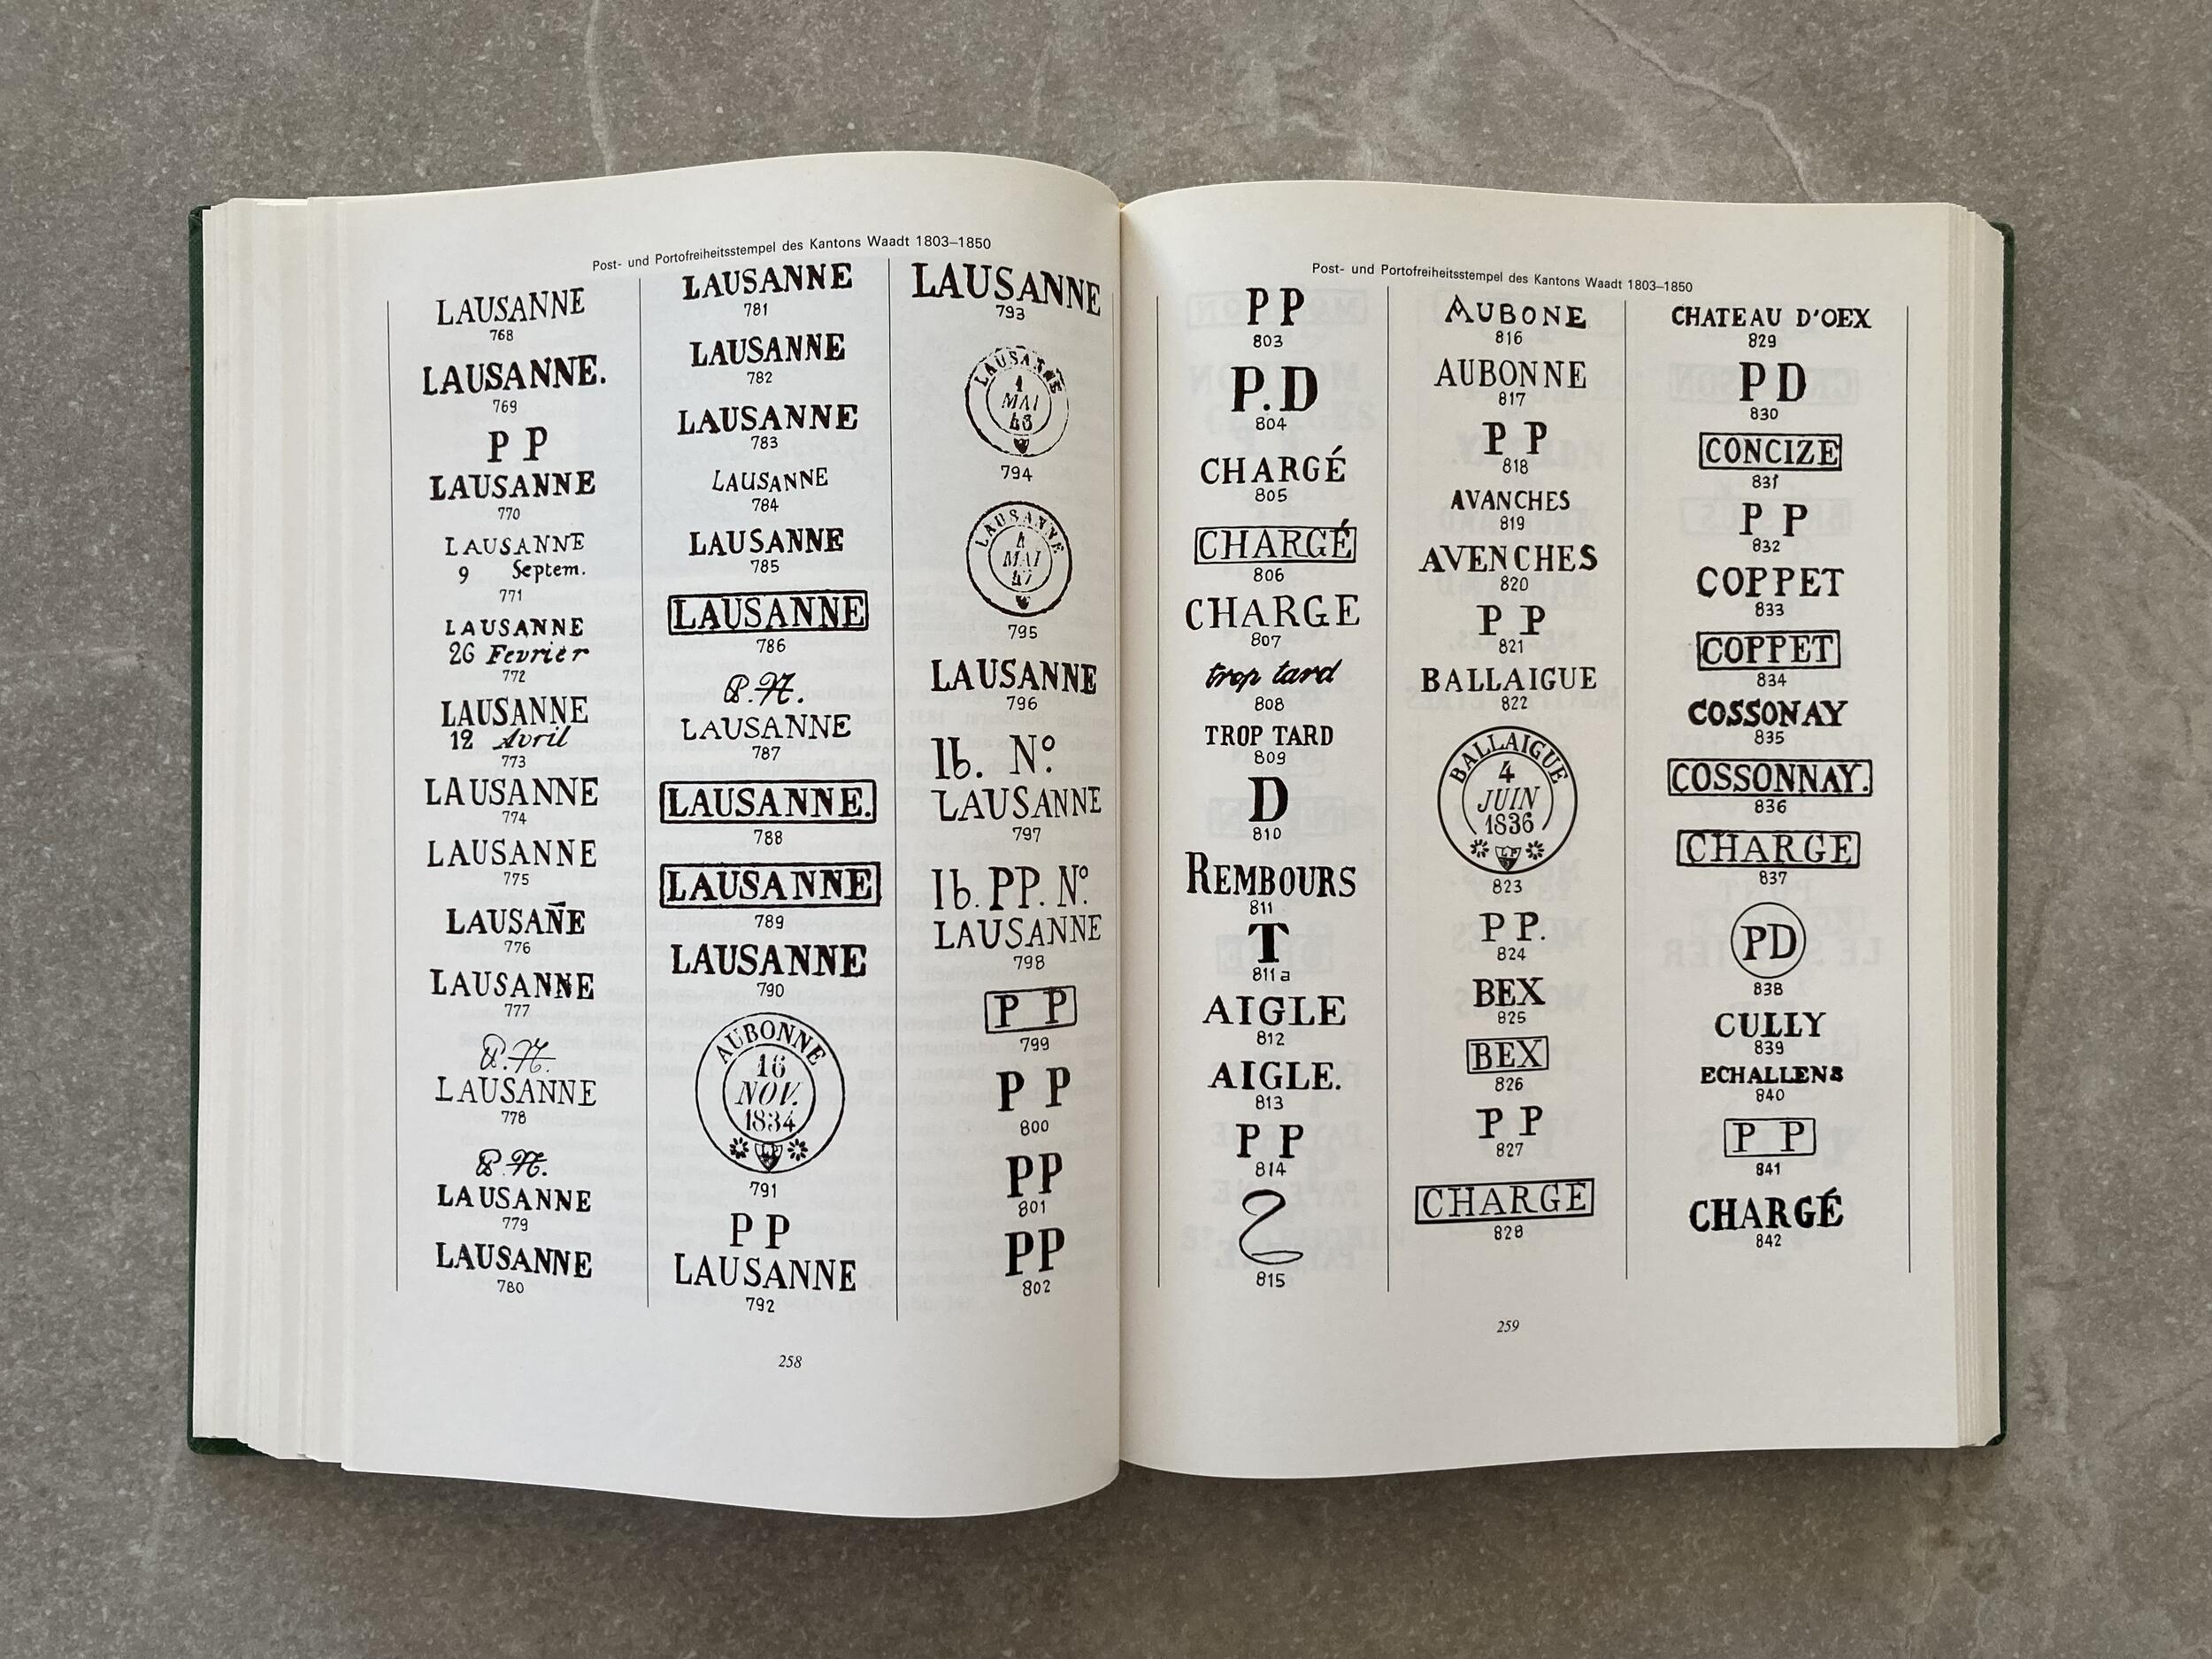 Post- und Portofreiheitsstempel des Kantons Waadt 1803–1850
LAUSANNE
768
LAUSANNE.
769
P P
LAUSANNE
770
LAUSANNE
9 Septem.
771
LAUSANNE
26 Fevrier
772
LAUSANNE
12 Avril
773
LAUSANNE
774
LAUSANNE
775
LAUSAÑE
776
LAUSANNE
777
P.P.
LAUSANNE
778
P.P.
LAUSANNE
779
LAUSANNE
780
LAUSANNE
781
LAUSANNE
782
LAUSANNE
783
LAUSANNE
784
LAUSANNE
785
LAUSANNE
786
P.P.
LAUSANNE
787
LAUSANNE.
788
LAUSANNE
789
LAUSANNE
790
AUBONNE
16
NOV.
1834
LP
791
P P
LAUSANNE
792
LAUSANNE
793
LAUSANNE
1
MAI
43
794
LAUSANNE
4
MAI
47
795
LAUSANNE
796
lb. Nº.
LAUSANNE
797
lb. PP. Nº.
LAUSANNE
798
P P
799
P P
800
PP
801
PP
802
258
Post- und Portofreiheitsstempel des Kantons Waadt 1803–1850
P P
803
P.D
804
CHARGÉ
805
CHARGÉ
806
CHARGE
807
trop tard
808
TROP TARD
809
D
810
REMBOURS
811
T
811a
AIGLE
812
AIGLE.
813
P P
814
815
AUBONE
816
AUBONNE
817
P P
818
AVANCHES
819
AVENCHES
820
P P
821
BALLAIGUE
822
BALLAIGUE
4
JUIN
1836
LP
823
P P.
824
BEX
825
BEX
826
P P
827
CHARGE
828
CHATEAU D'OEX
829
P D
830
CONCIZE
831
P P
832
COPPET
833
COPPET
834
COSSONAY
835
COSSONNAY.
836
CHARGE
837
PD
838
CULLY
839
ECHALLENS
840
P P
841
CHARGÉ
842
259